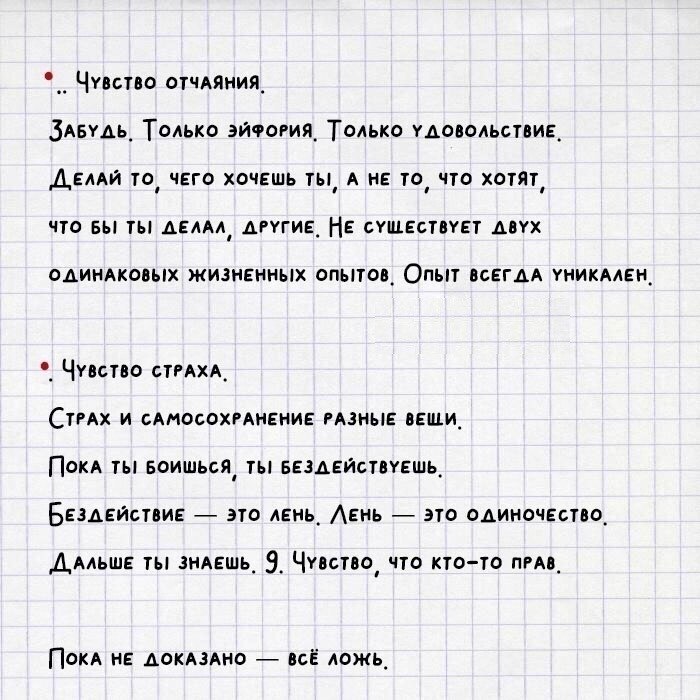 •.. Чувство отчаяния.
Забудь. Только эйфория. Только удовольствие.
Делай то, чего хочешь ты, а не то, что хотят,
что бы ты делал, другие. Не существует двух
одинаковых жизненных опытов. Опыт всегда уникален.
•. Чувство страха.
Страх и самосохранение разные вещи.
Пока ты боишься, ты бездействуешь.
Бездействие — это лень. Лень — это одиночество.
Дальше ты знаешь. 9. Чувство, что кто-то прав.
Пока не доказано — всё ложь.